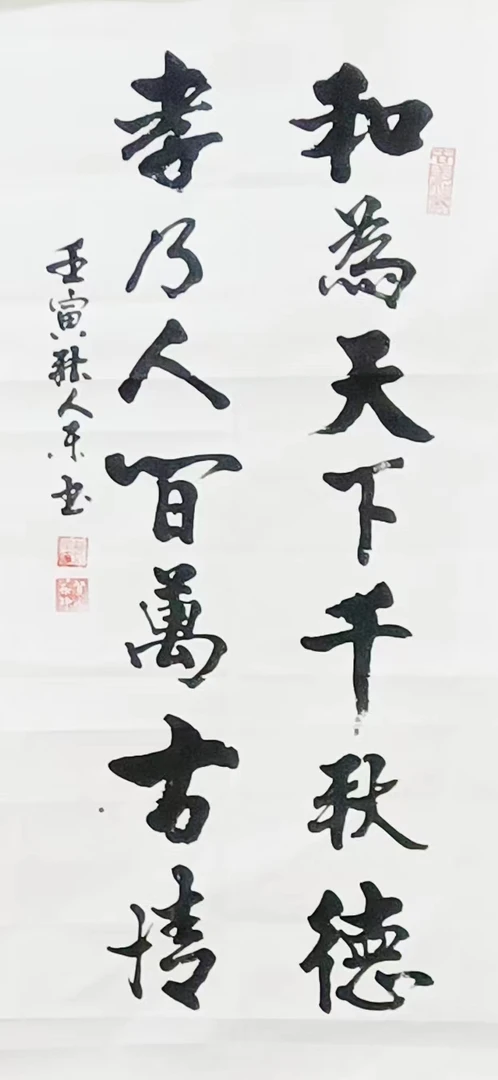 和為天下千秋德
孝乃人間萬古情
壬寅人书